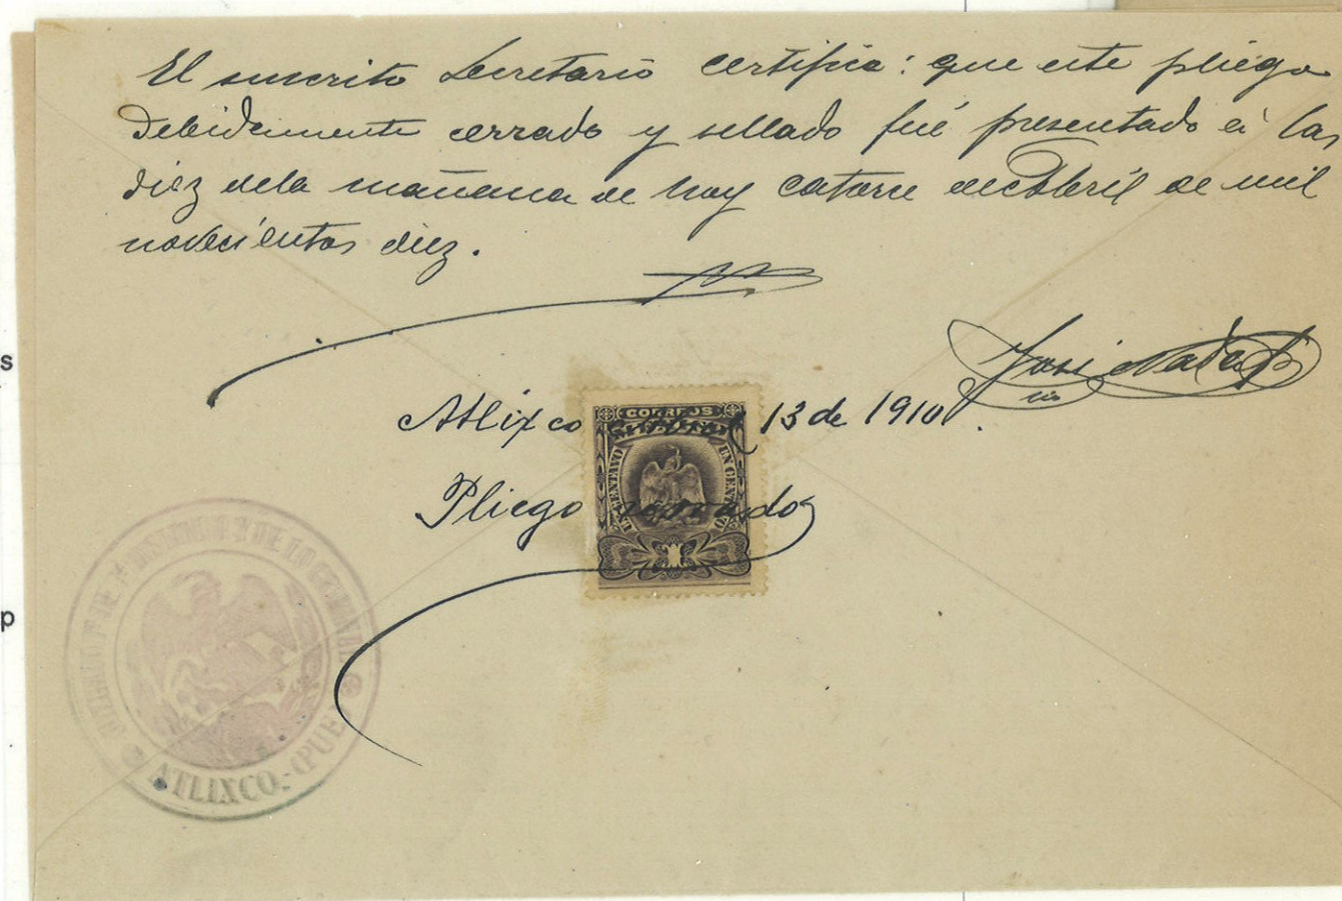 El suscrito Secretario certifica: que este pliego
debidamente cerrado y sellado fué presentado á las
diez dela mañana de hoy catorce de Abril de mil
novecientos diez.
José
Atlixco Abril 13 de 1910.
CORREOS
UN CENTAVO UN CENTAVO
1
Pliego cerrado
JUZGADO 1º DE Y DE LO CRIMINAL
ATLIXCO.-(PUE
s
p